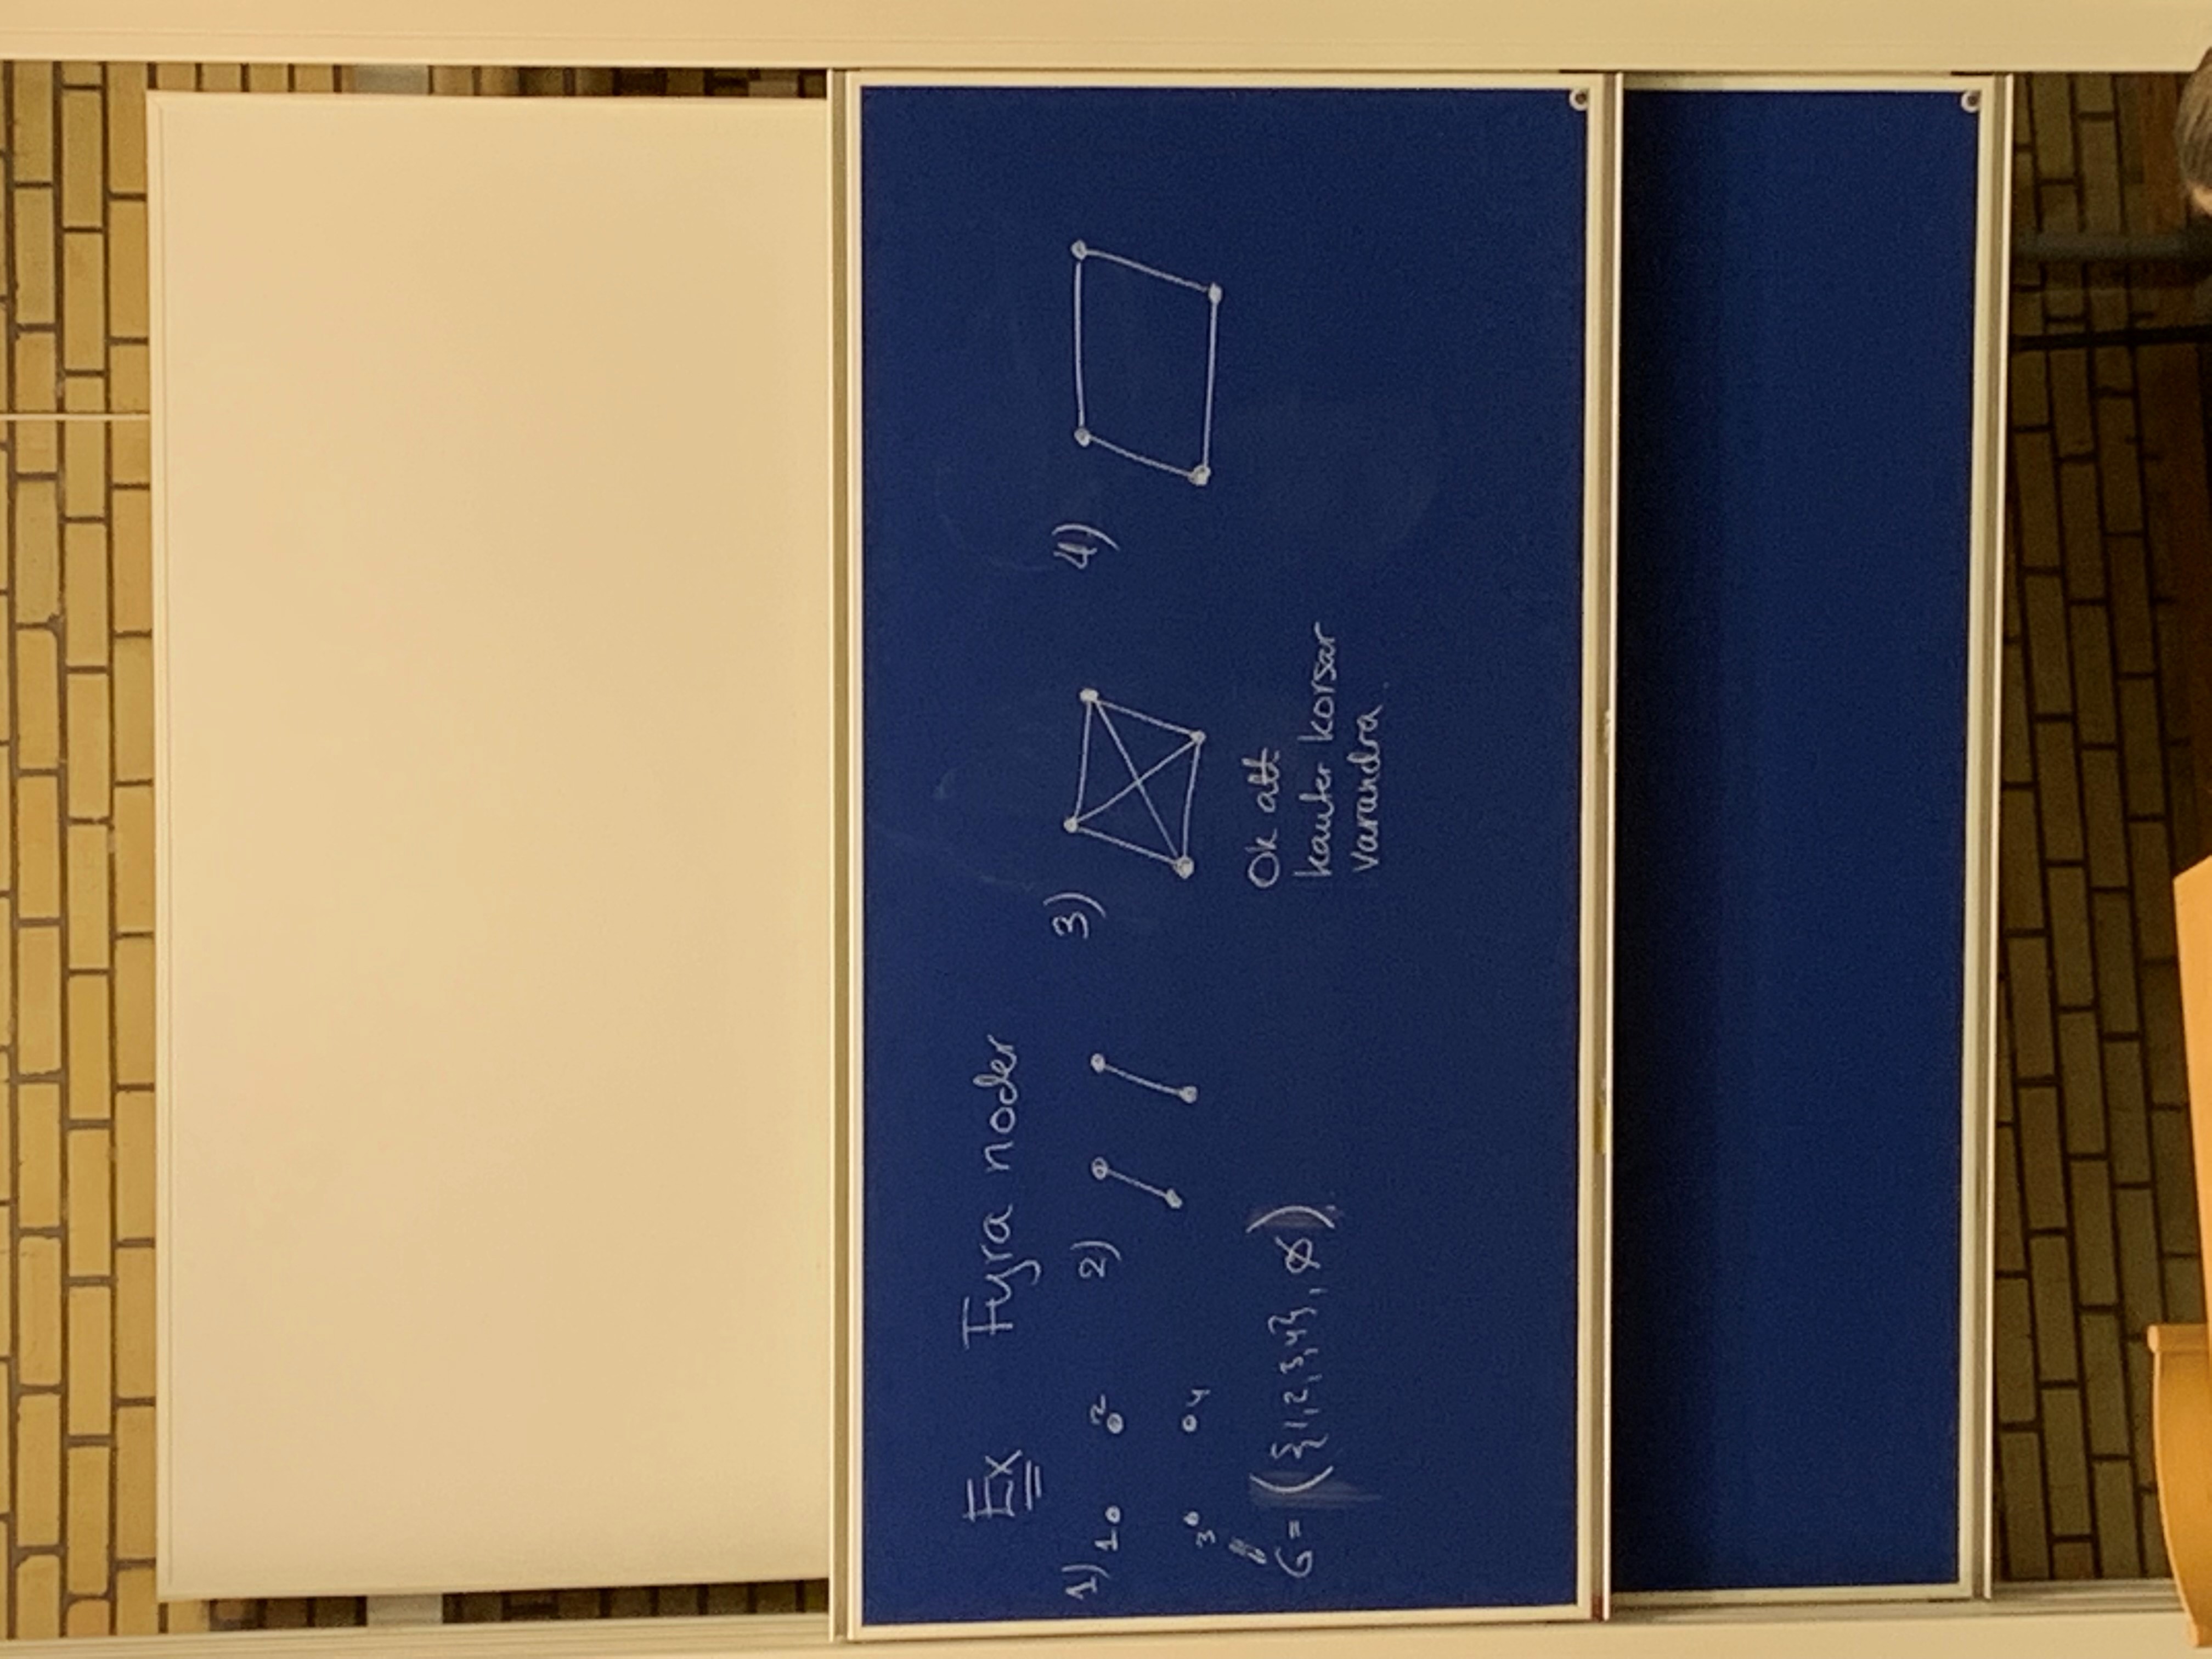 Ex Fyra noder
1) 2) 3) 4)
1 2
3 4
G = ({1,2,3,4}, ∅).
Ok att
kanter korsar
varandra.